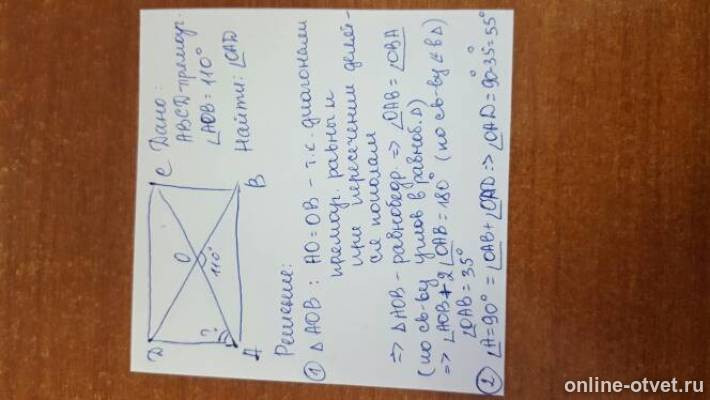 D
C
O
110°
?
A
B
Дано:
ABCD-прямоуг.
∠AOB = 110°
Найти: ∠OAD
Решение:
① △AOB : AO=OB – т.к. диагонали
прямоуг. равны и
при пересечении делят-
ся пополам
=> △AOB - равнобедр. => ∠OAB = ∠OBA
(по св-ву углов в равноб. △)
=> ∠AOB + 2∠OAB = 180° (по св-ву ∠ в △)
∠OAB = 35°
② ∠A = 90° = ∠OAB + ∠OAD => ∠OAD = 90°-35°=55°
online-otvet.ru